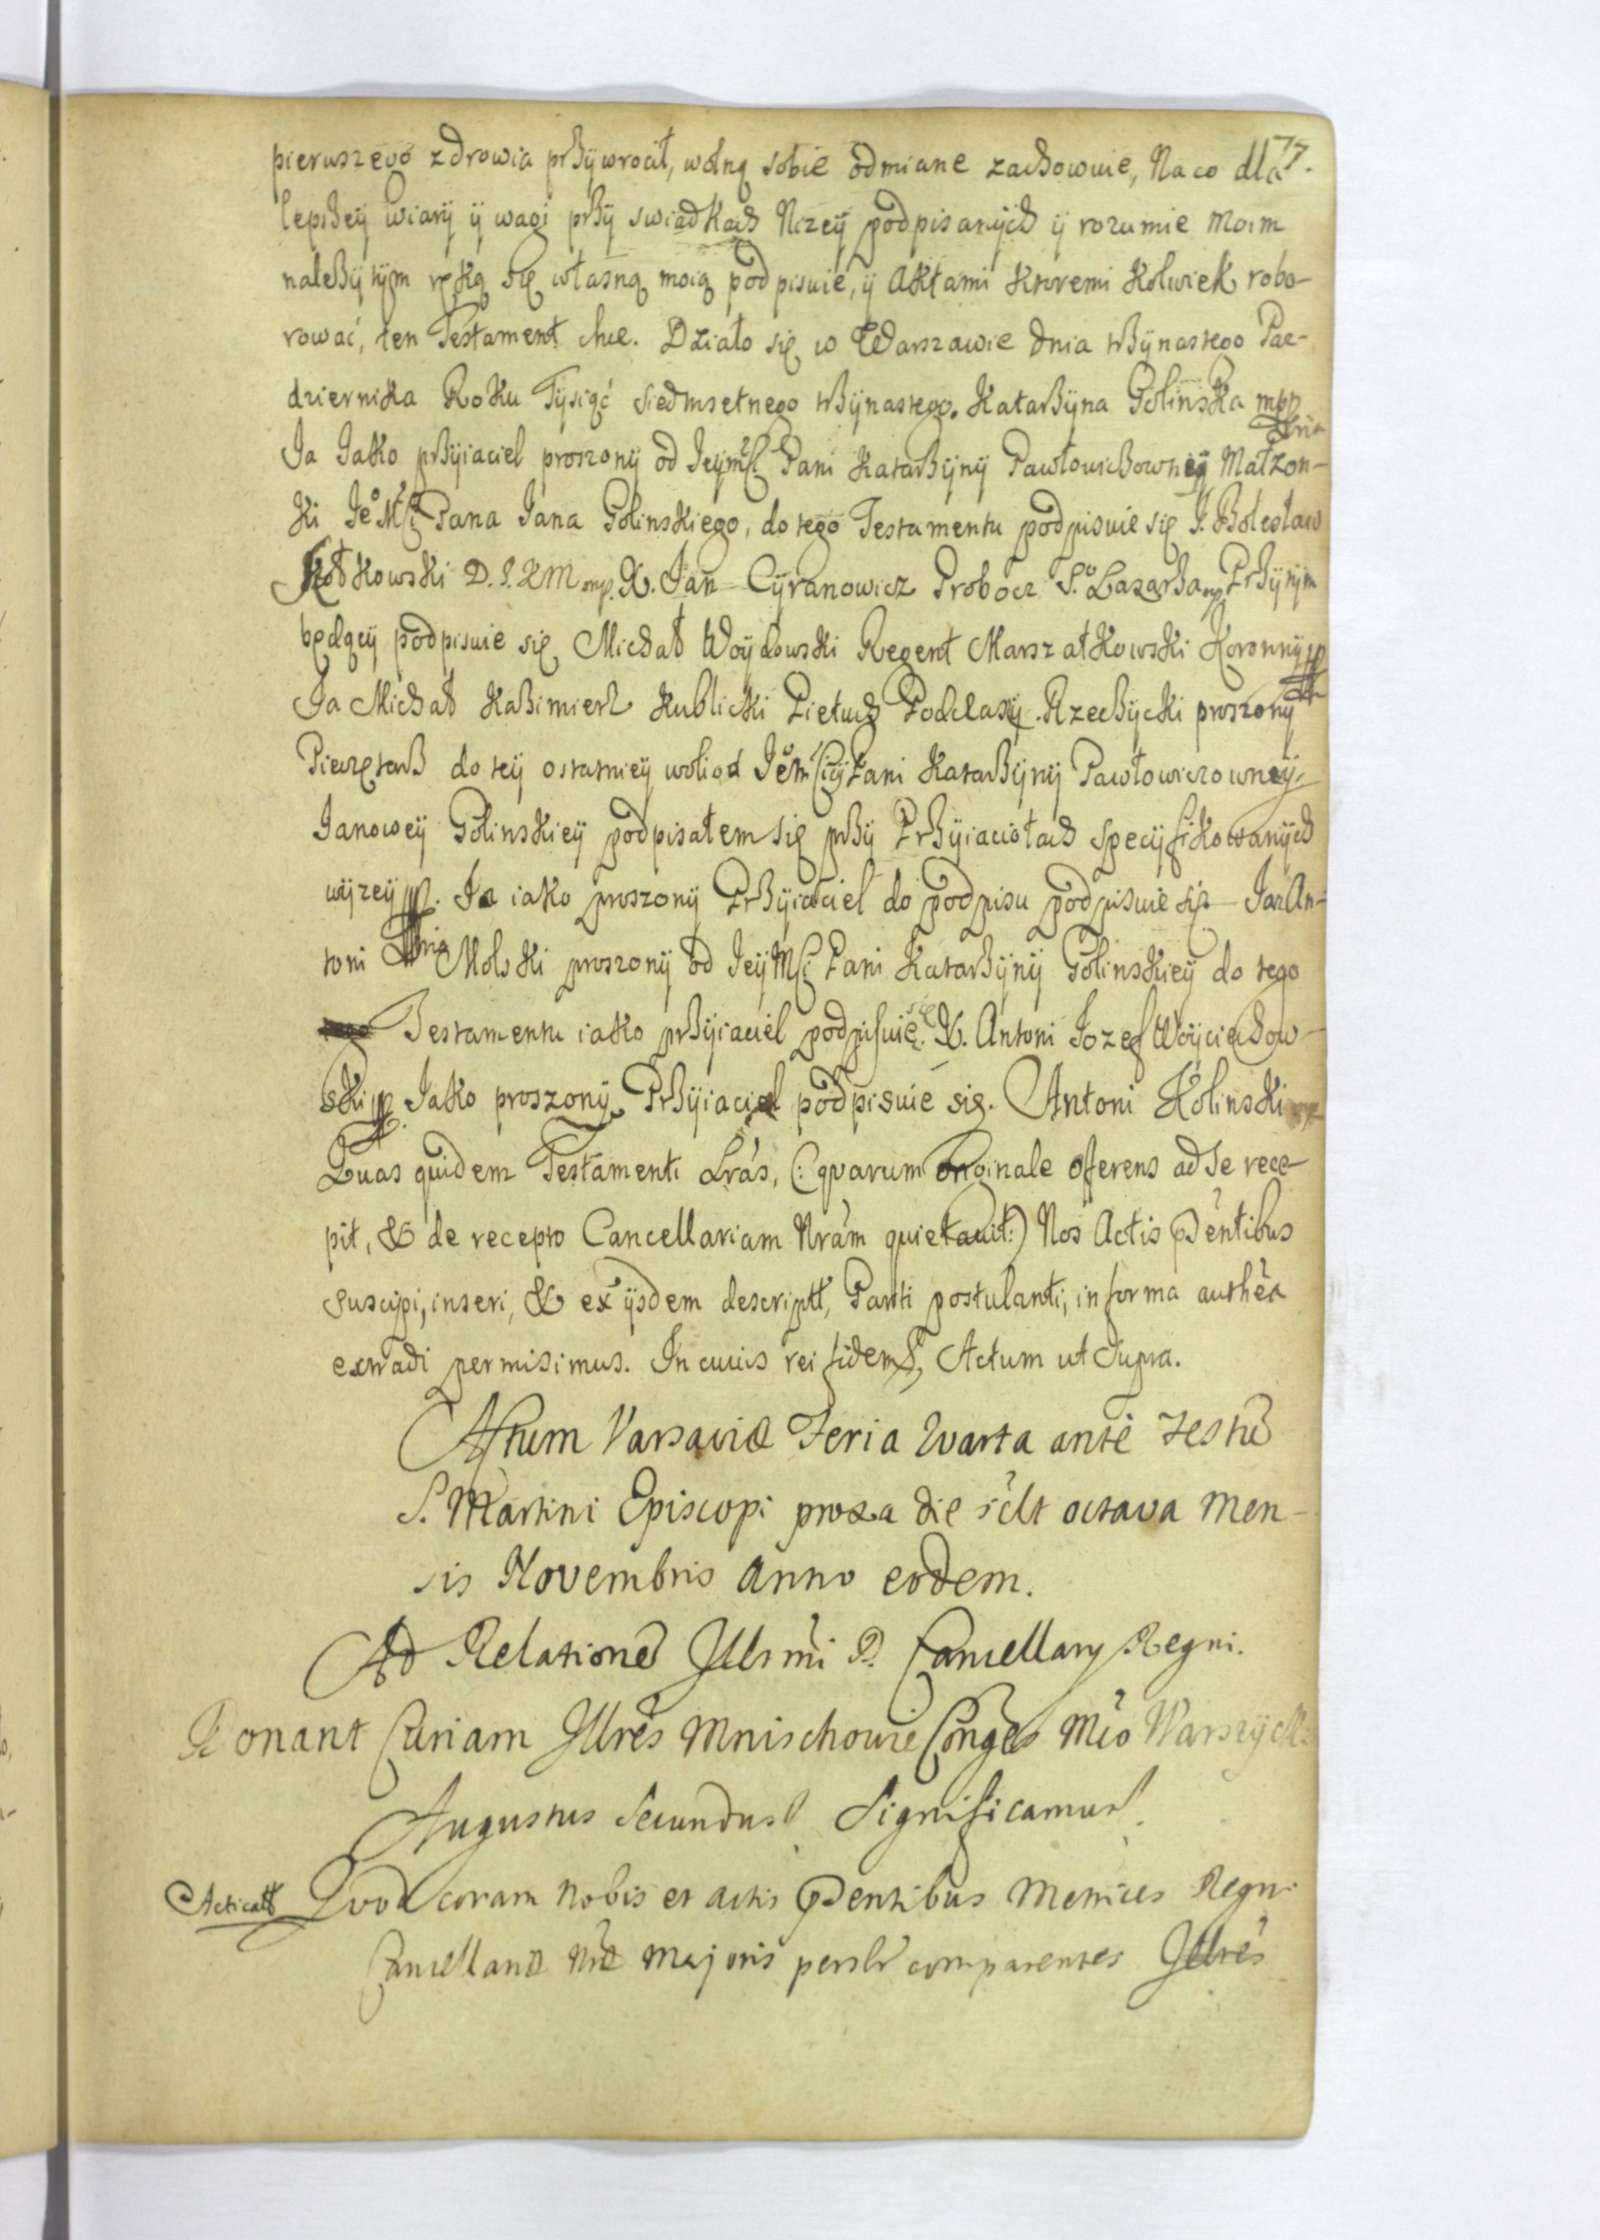 77.
pierwszego zdrowia przywrocił, wolną sobie odmiane zachowuie, Na co dla
lepszey wiary y wagi przy swiadkach Niżey podpisanych y rozumie moim
należytym ręką się własną moią podpisuie, y Aktami ktoremi kolwiek robo-
rować, ten Testament chce. Działo się w Warszawie dnia trzynastego Paź-
dziernika Roku Tysiąć siedmsetnego trzynastego. Katarzyna Golinska mpp
Ja Jako przyiaciel proszony od Jeymści Pani Katarzyny Pawłowiczowney Małżon-
ki Je Mści Pana Jana Golinskiego, do tego Testamentu podpisuie się J. Bolesław
D. J. K M mp. X. Jan Cyranowicz Probocz S. Lazarza mp Przytym
będący podpisuie się Michał Woydowski Regent Marszałkowski Koronny mp
Ja Michał Kazimierz Kublicki Pietuch Podczaszy Rzeczycki proszony
Pieczętarz do tey ostatniey woli od Pani Katarzyny Pawłowiczowney
Janowey Golinskiey podpisałem się przy Przyiaciołach specyfikowanych
wyżey mp. Ja iako proszony Przyiaciel do podpisu podpisuie się Jan An-
toni Molski proszony od Jey Mści Pani Katarzyny Golinskiey do tego
Testamentu iako przyiaciel podpisuię się. X. Antoni Jozef Woyciechow-
ski mp. Jako proszony Przyiaciel podpisuie się. Antoni Kolinski mp
Quas quidem Testamenti Lrás, (: quarum originale oferens ad se rece-
pit, & de recepto Cancellariam Nrám quietavit:) Nos Actis Pńtibus
suscipi, inseri, & ex ijsdem descriptt, Parti postulanti, in forma authēa
extradi permisimus. In cuius rei fidem &, Actum ut supra.
Actum Varsaviæ Feria Quarta ante Festū
S. Martini Episcopi proxa die sclt octava Men-
sis Novembris Anno eodem.
Ad Relationē Illrmi D. Cancellarij Regni.
Donant Curiam Illrēs Mnischowie Conges Mco Warszyck:
Augustus Secundus & Significamus &.
Acticatt Quod coram nobis et actis Pńtibus Metrices Regni
Cancellariæ Nræ Majoris persłr comparentes Illrēs